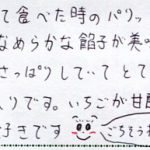 て食べた時のパリッ
なめらかな餡子が美味
さっぱりしていて とて
入りです。いちごが甘酸
好きです
ごちそうさ